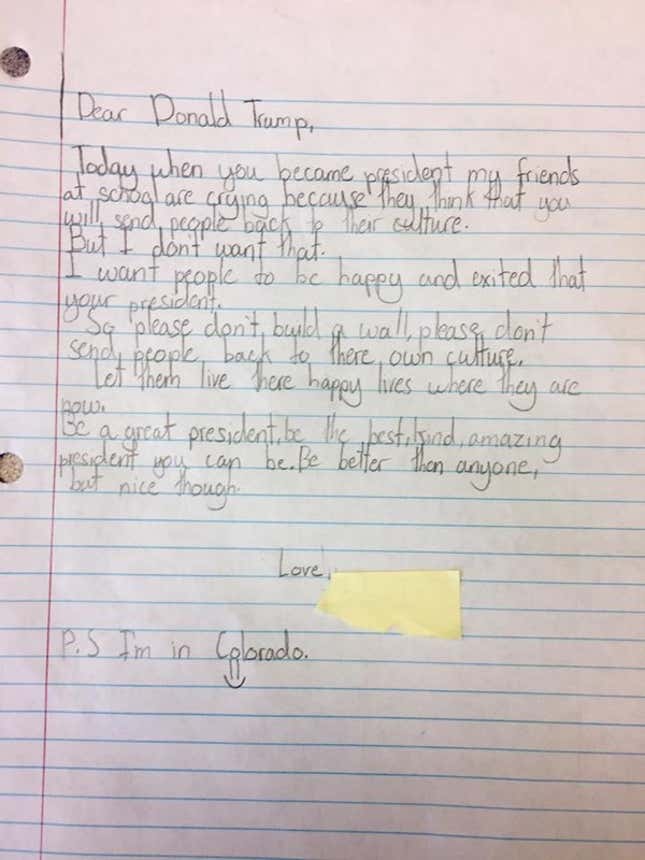 Dear Donald Trump,
Today when you became president my friends
at school are crying because they think that you
will send people back to their culture.
But I don't want that.
I want people to be happy and exited that
your president.
So please don't build a wall, please don't
send people back to there own culture.
Let them live there happy lives where they are
now.
Be a great president, be the best, kind, amazing
president you can be. Be better then anyone,
but nice though.
Love,
P.S I'm in Colorado.